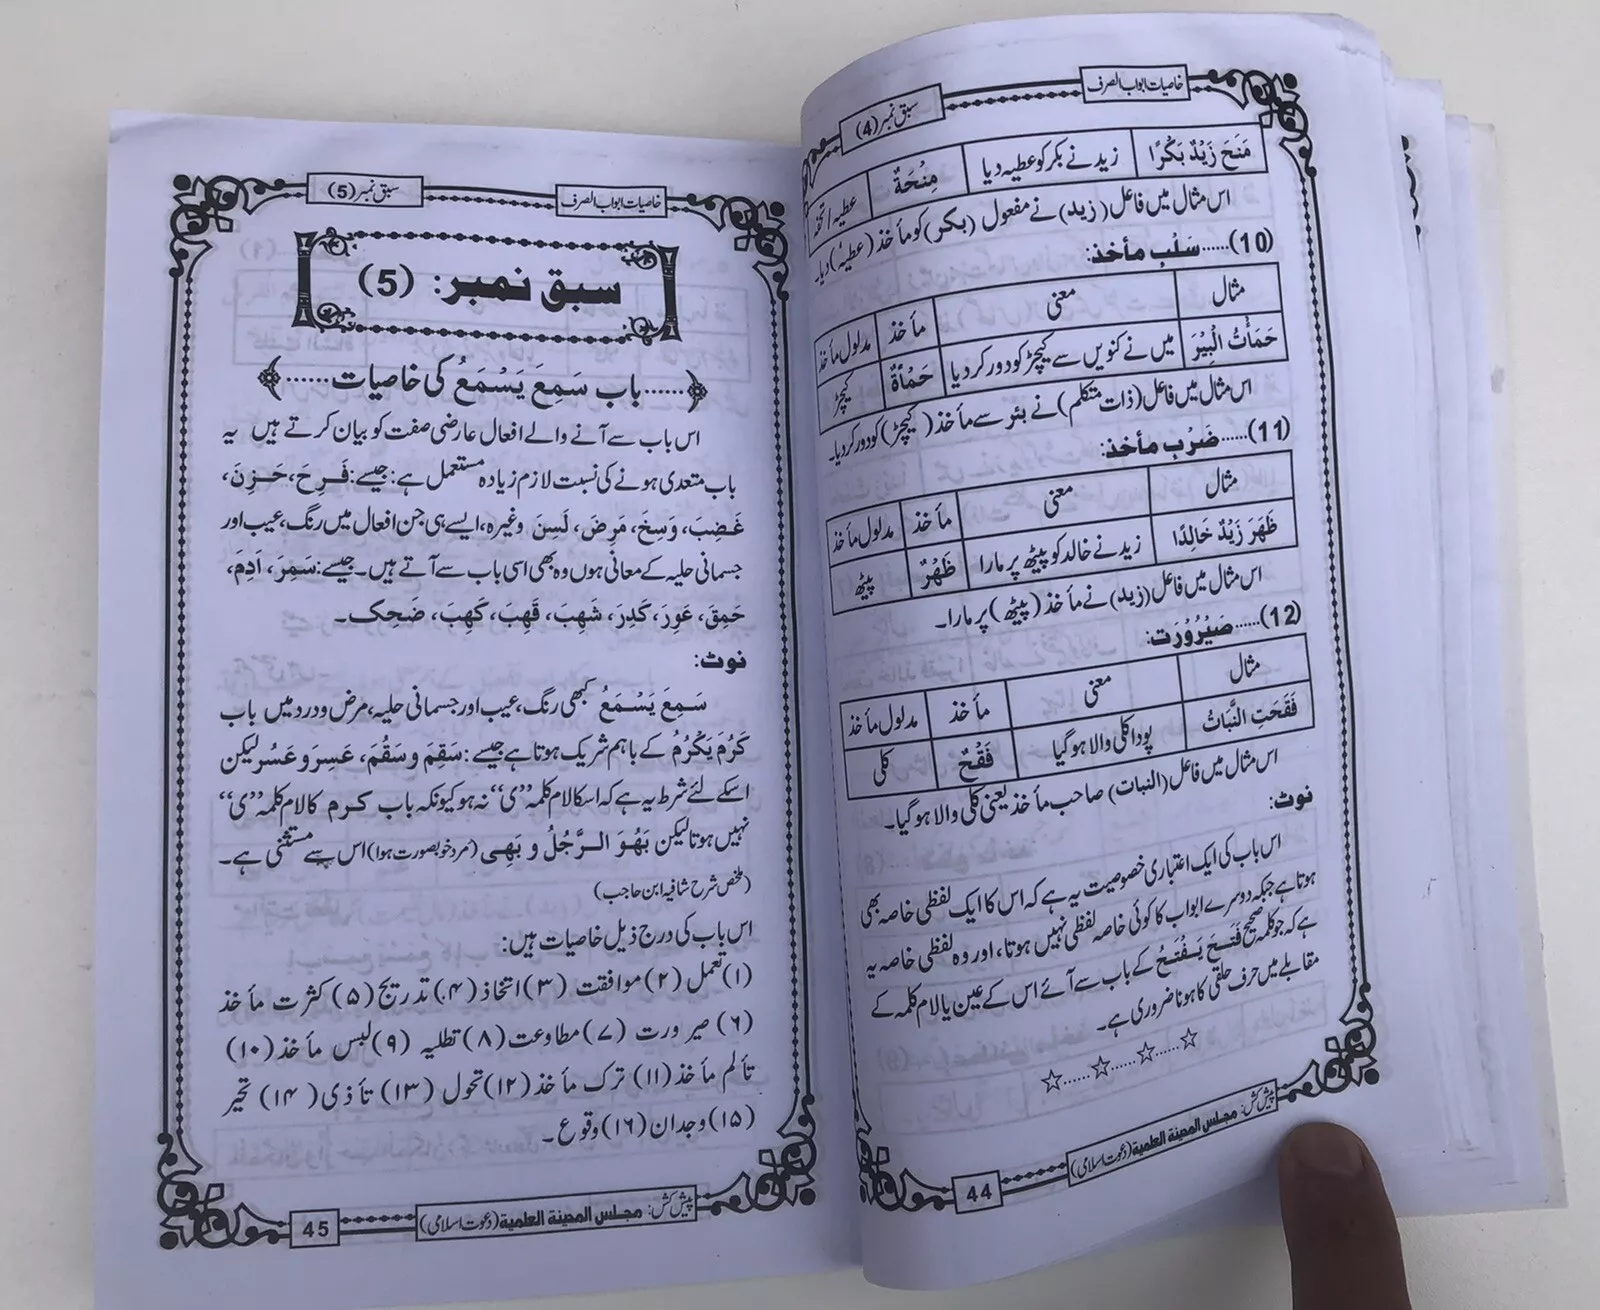 خاصیات ابواب الصرف
سبق نمبر (4)
مَنَحَ زَیْدٌ بَکْرًا زید نے بکر کو عطیہ دیا مِنْحَةٌ عطیہ
اس مثال میں فاعل (زید) نے مفعول (بکر) کو مأخذ (عطیہ) دیا۔
(10)......سَلْبِ مأخذ:
مثال معنی مأخذ مدلول مأخذ
حَمَأْتُ الْبِیْرَ میں نے کنویں سے کیچڑ کو دور کر دیا حَمْأَةٌ کیچڑ
اس مثال میں فاعل (ذات متکلم) نے بئر سے مأخذ (کیچڑ) کو دور کر دیا۔
(11)......ضَرْبِ مأخذ:
مثال معنی مأخذ مدلول مأخذ
ظَهَرَ زَیْدٌ خَالِدًا زید نے خالد کو پیٹھ پر مارا ظَهْرٌ پیٹھ
اس مثال میں فاعل (زید) نے مأخذ (پیٹھ) پر مارا۔
(12)......صَیْرُوْرَت:
مثال معنی مأخذ مدلول مأخذ
فَقَحَتِ النَّبَاتُ پودا کلی والا ہو گیا فَقْحٌ کلی
اس مثال میں فاعل (النبات) صاحب مأخذ یعنی کلی والا ہو گیا۔
نوٹ:
اس باب کی ایک اعتباری خصوصیت یہ ہے کہ اس کا ایک لفظی خاصہ بھی
ہوتا ہے جبکہ دوسرے ابواب کا کوئی خاصہ لفظی نہیں ہوتا، اور وہ لفظی خاصہ یہ
ہے کہ جو کلمہ صحیح فَتَحَ یَفْتَحُ کے باب سے آئے اس کے عین یا لام کلمہ کے
مقابلے میں حرف حلقی کا ہونا ضروری ہے۔
☆......☆......☆......☆
پیش کش: مجلس المدینة العلمیة (دعوت اسلامی)
44
خاصیات ابواب الصرف
سبق نمبر (5)
سبق نمبر: (5)
......باب سَمِعَ یَسْمَعُ کی خاصیات......
اس باب سے آنے والے افعال عارضی صفت کو بیان کرتے ہیں یہ
باب متعدی ہونے کی نسبت لازم زیادہ مستعمل ہے: جیسے: فَرِحَ، حَزِنَ،
غَضِبَ، وَسِخَ، مَرِضَ، لَسِنَ وغیرہ، ایسے ہی جن افعال میں رنگ، عیب اور
جسمانی حلیہ کے معانی ہوں وہ بھی اسی باب سے آتے ہیں۔ جیسے: سَمِرَ، اَدِمَ،
حَمِقَ، عَوِرَ، کَدِرَ، شَهِبَ، قَهِبَ، کَهِبَ، ضَحِکَ۔
نوٹ:
سَمِعَ یَسْمَعُ کبھی رنگ، عیب اور جسمانی حلیہ، مرض و درد میں باب
کَرُمَ یَکْرُمُ کے باہم شریک ہوتا ہے جیسے: سَقِمَ و سَقُمَ، عَسِرَ و عَسُرَ لیکن
اسکے لئے شرط یہ ہے کہ اسکا لام کلمہ ”ی“ نہ ہو کیونکہ باب کرم کا لام کلمہ ”ی“
نہیں ہوتا لیکن بَهُوَ الرَّجُلُ و بَهِی (مرد خوبصورت ہوا) اس سے مستثنی ہے۔
(ملخص شرح شافیہ ابن حاجب)
اس باب کی درج ذیل خاصیات ہیں:
(۱) تعمل (۲) موافقت (۳) اتخاذ (۴) تدریج (۵) کثرت مأخذ
(۶) صیرورت (۷) مطاوعت (۸) تطلیہ (۹) لبس مأخذ (۱۰)
تألم مأخذ (۱۱) ترک مأخذ (۱۲) تحول (۱۳) تأذی (۱۴) تحیر
(۱۵) وجدان (۱۶) وقوع۔
پیش کش: مجلس المدینة العلمیة (دعوت اسلامی)
45